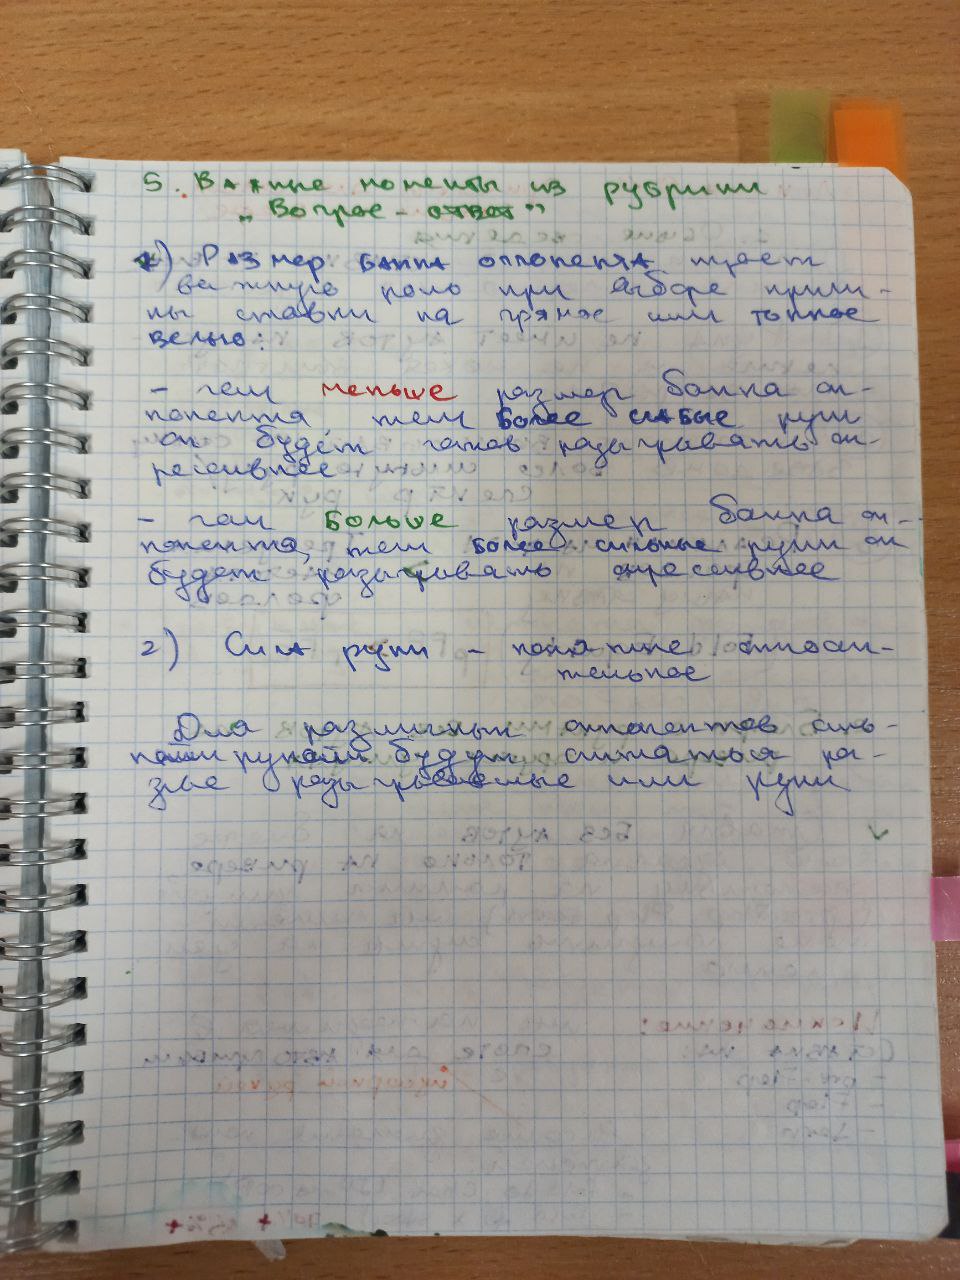 5. Важные моменты из рубрики
„Вопрос - ответ"
1) Размер банка оппонента играет
важную роль при выборе причи-
ны ставки на прямое или тонкое
велью:
- чем меньше размер банка оп-
понента, тем более слабые руки
он будет готов разыгрывать аг-
рессивнее
- чем больше размер банка оп-
понента, тем более сильные руки он
будет разыгрывать агрессивнее
2) Сила руки - понятие относи-
тельное
Для различных оппонентов силь-
ными руками будут считаться ра-
зные разыгрываемые ими руки